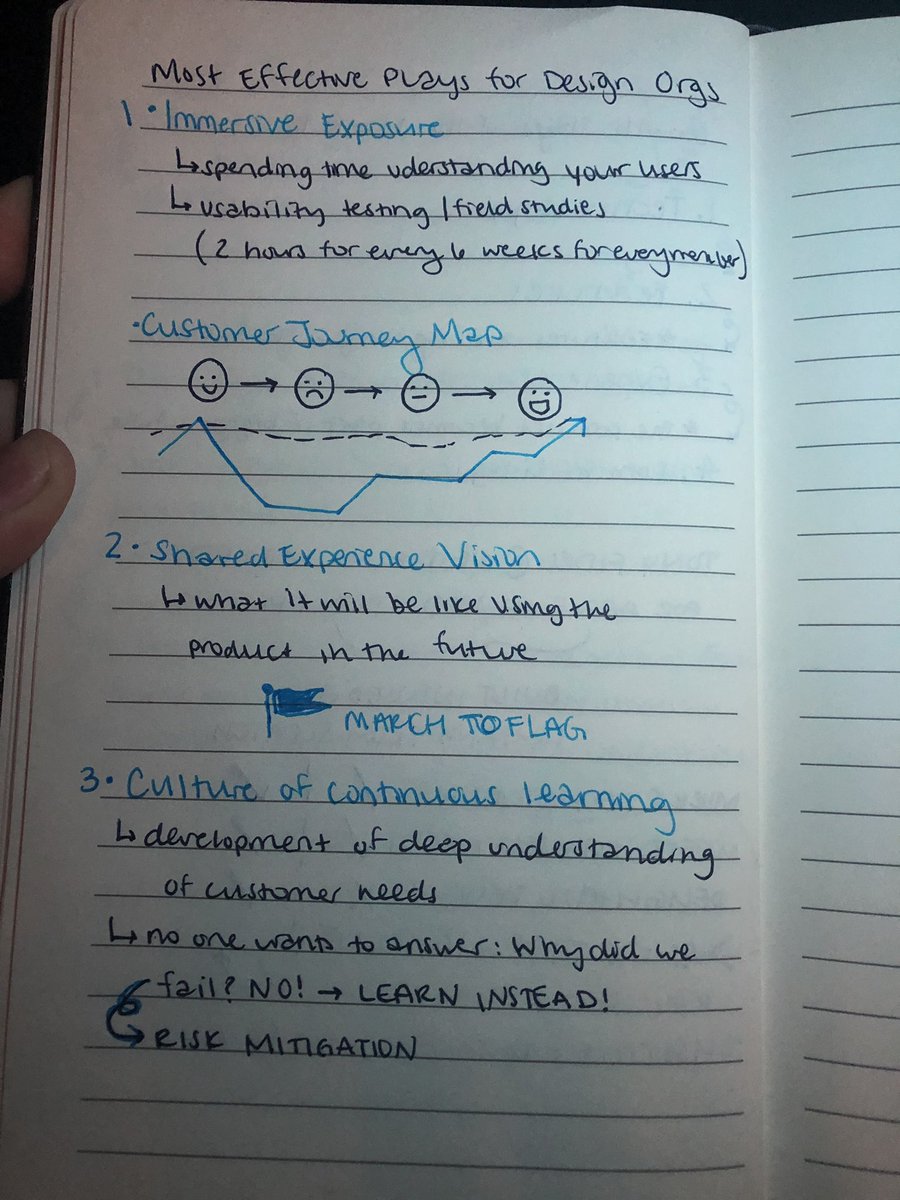 Most Effective Plays for Design Orgs
1 • Immersive Exposure
↳ spending time uderstanding your users
↳ usability testing / field studies
(2 hours for every 6 weeks for eveymember)
• Customer Journey Map
2 • Shared Experience Vision
↳ what it will be like using the
product in the future
MARCH TO FLAG
3 • Culture of continuous learning
↳ development of deep understanding
of customer needs
↳ no one wants to answer: Why did we
fail? NO! → LEARN INSTEAD!
↳ RISK MITIGATION